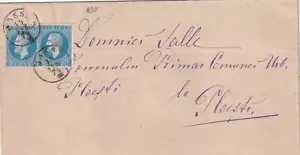 Domniei Salle
Domnului Primar Comunei Urb.
Ploesti
la Ploesti